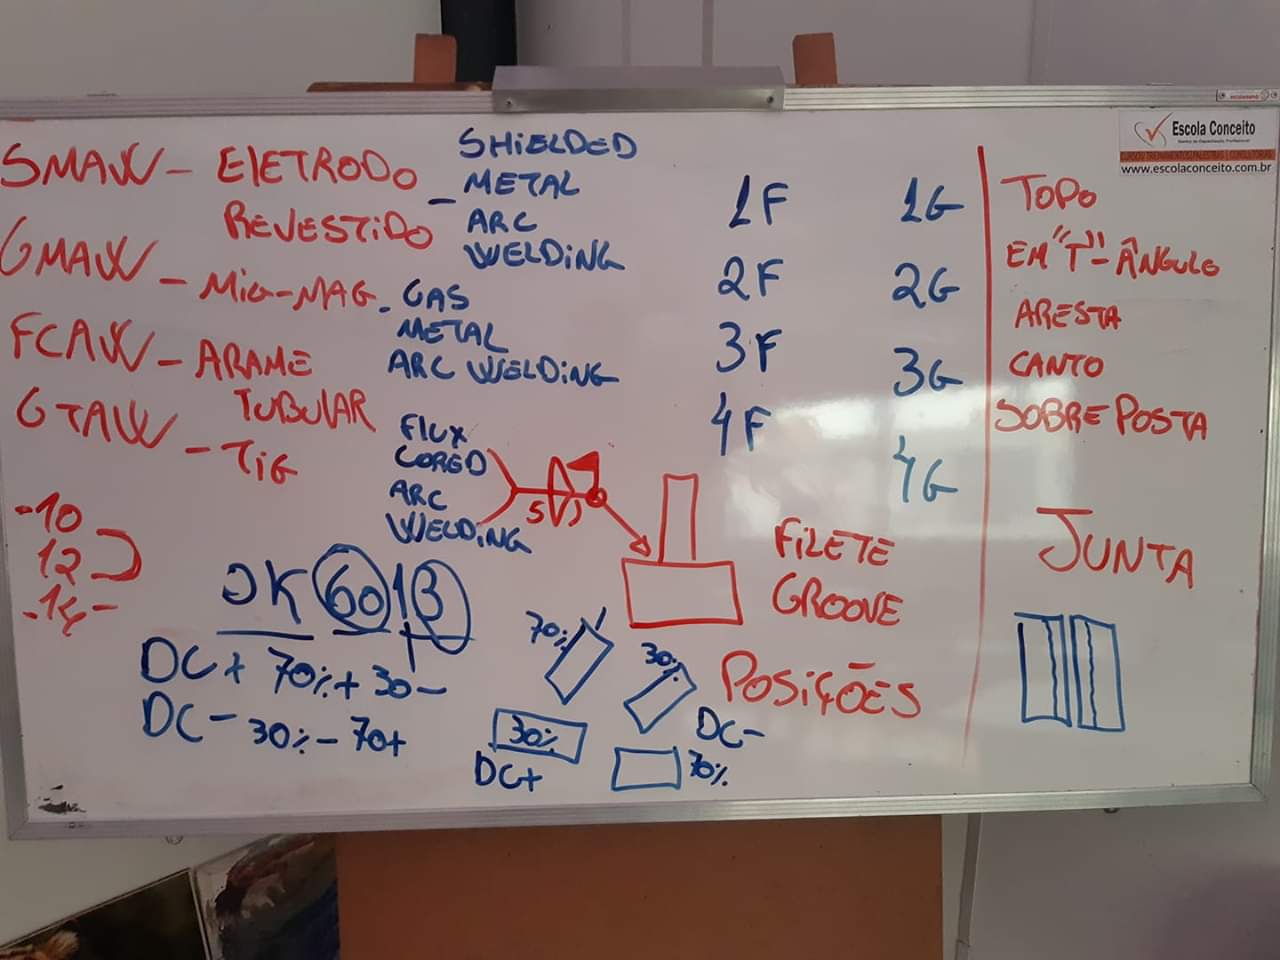 SMAW - ElETRODO
REVESTiDO
- SHiELDED
METAL
ARC
WELDiNG
GMAW - MiG-MAG
- GAS
METAL
ARC WELDiNG
FCAW - ARAME
TUBULAR
GTAW - TiG
FlUX
CORED
ARC
WELDiNG
5
-10
12
-14-
OK 6013
DC+ 70%+ 30-
DC- 30%- 70+
1F
2F
3F
4F
1G
2G
3G
4G
FiLETE
GROOVE
POSiÇÕES
70%
30%
DC+
30%
DC-
70%
Escola Conceito
www.escolaconceito.com.br
TOPO
EM "T" - ÂNGULO
ARESTA
CANTO
SOBREPOSTA
JUNTA